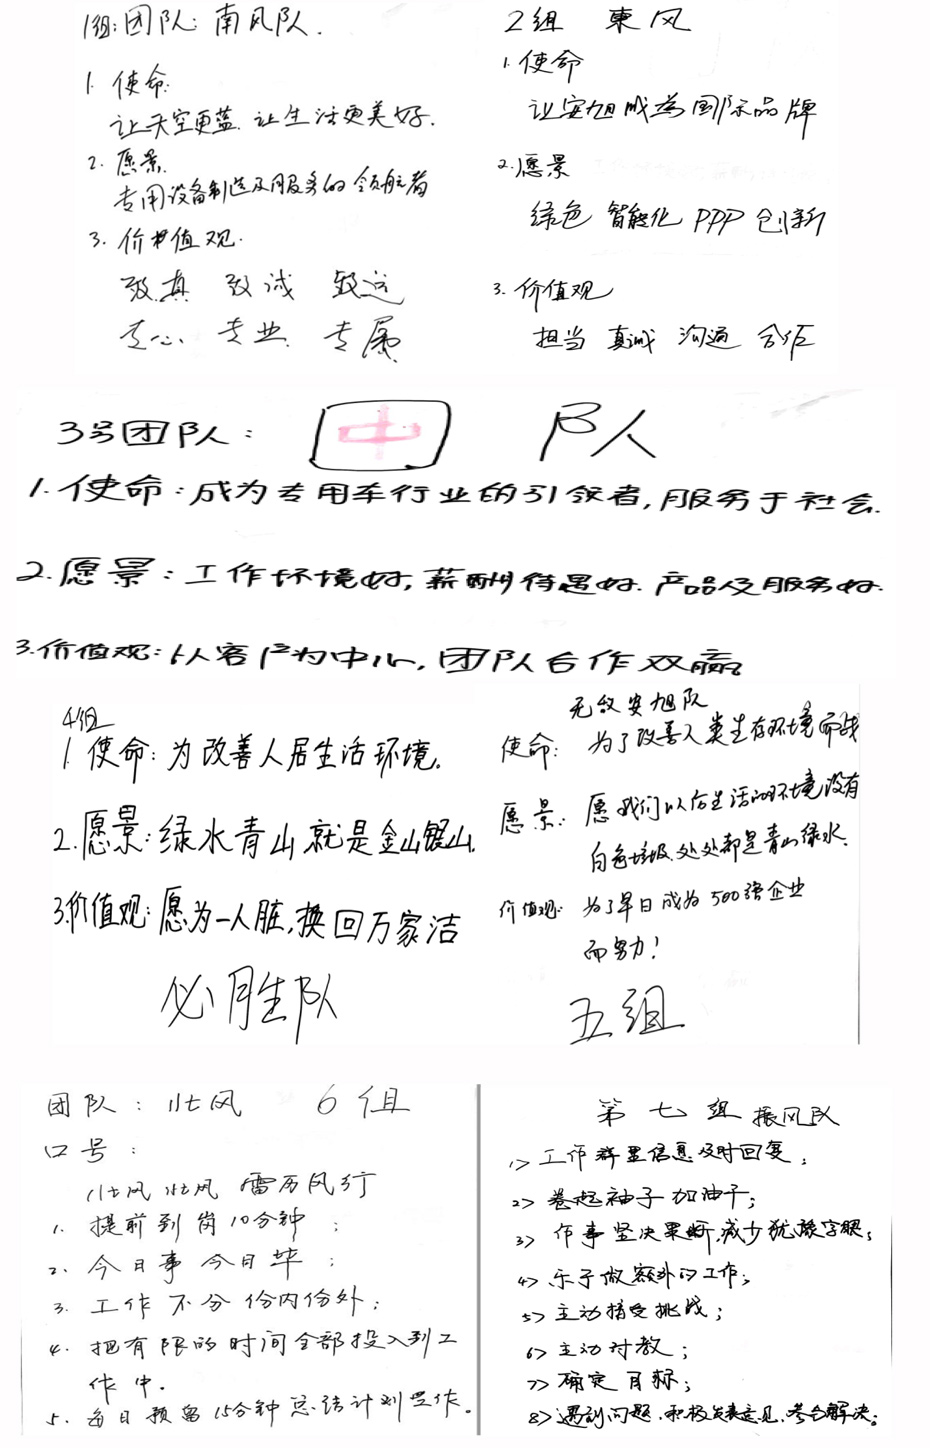 1组:团队:南风队.
1. 使命:
让天空更蓝 让生活更美好.
2. 愿景.
专用设备制造及服务的领航者
3. 价值观.
致真 致诚 致远
专心 专业 专属
2组 東风
1. 使命
让安旭成为国际品牌
2. 愿景
绿色 智能化 PPP 创新
3. 价值观
担当 真诚 沟通 合作
3号团队: 中 队
1. 使命:成为专用车行业的引领者,服务于社会.
2. 愿景:工作环境好,薪酬待遇好.产品及服务好.
3. 价值观:以客户为中心,团队合作双赢
4组
1. 使命:为改善人居生活环境.
2. 愿景:绿水青山就是金山银山.
3. 价值观:愿为一人脏,换回万家洁
必胜队
无敌安旭队
使命: 为了改善人类生存环境而战
愿景: 愿我们以后生活的环境没有
白色垃圾.处处都是青山绿水.
价值观: 为了早日成为500强企业
而努力!
五组
团队:北风 6组
口号:
北风北风 雷厉风行
1. 提前到岗10分钟;
2. 今日事今日毕;
3. 工作不分份内份外;
4. 把有限的时间全部投入到工
作中.
5. 每日预留15分钟总结计划工作.
第七组 振风队
1> 工作群里信息及时回复;
2> 卷起袖子加油干;
3> 作事坚决果断,减少犹豫字眼;
4> 乐于做额外的工作;
5> 主动接受挑战;
6> 主动讨教;
7> 确定目标;
8> 遇到问题.积极发表意见,参与解决;